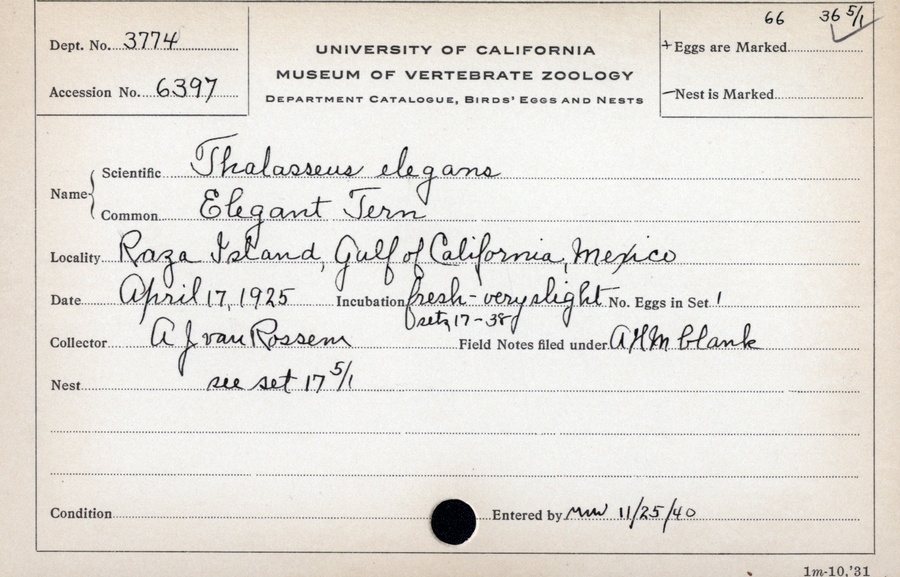 66 36 5/1
Dept. No. 3774
UNIVERSITY OF CALIFORNIA
+ Eggs are Marked
MUSEUM OF VERTEBRATE ZOOLOGY
Accession No. 6397
DEPARTMENT CATALOGUE, BIRDS' EGGS AND NESTS
— Nest is Marked
Name { Scientific Thalasseus elegans
Common Elegant Tern
Locality Raza Island, Gulf of California, Mexico
Date April 17, 1925 Incubation fresh-very slight No. Eggs in Set 1
(sets 17-38)
Collector A J van Rossem Field Notes filed under AHM blank
Nest see set 17 5/1
Condition Entered by MW 11/25/40
1m-10,'31